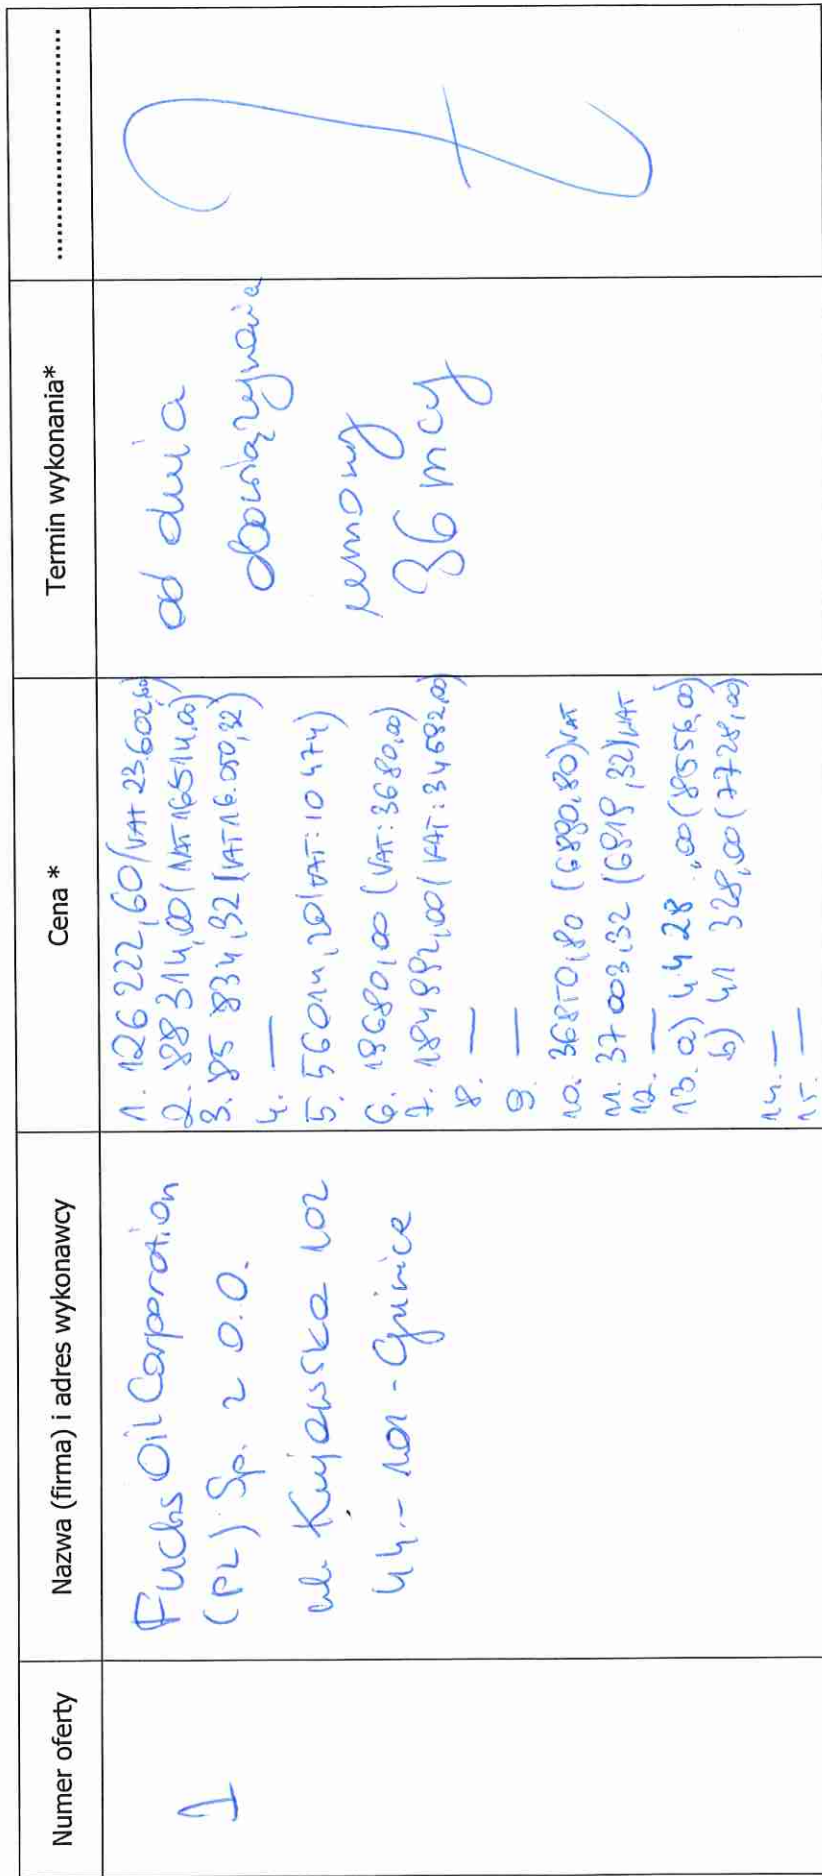 Numer oferty
Nazwa (firma) i adres wykonawcy
Cena *
Termin wykonania*
................................
1
Fuchs Oil Corporation
(PL) Sp. z o.o.
ul. Kujawska 102
44-101-Gliwice
1. 126 222,60 (VAT 23.602,60)
2. 88314,00 (VAT 16514,00)
3. 85 834,32 (VAT 16.050,32)
4. —
5. 56014,20 (VAT: 10474)
6. 19680,00 (VAT: 3680,00)
7. 184992,00 (VAT: 34592,00)
8. —
9. —
10. 36850,80 (6890,80) VAT
11. 37 003,32 (6919,32) VAT
12. —
13. a) 4428,00 (8556,00)
b) 41 328,00 (7728,00)
14. —
15. —
od dnia
obowiązywania
umowy
36 mcy